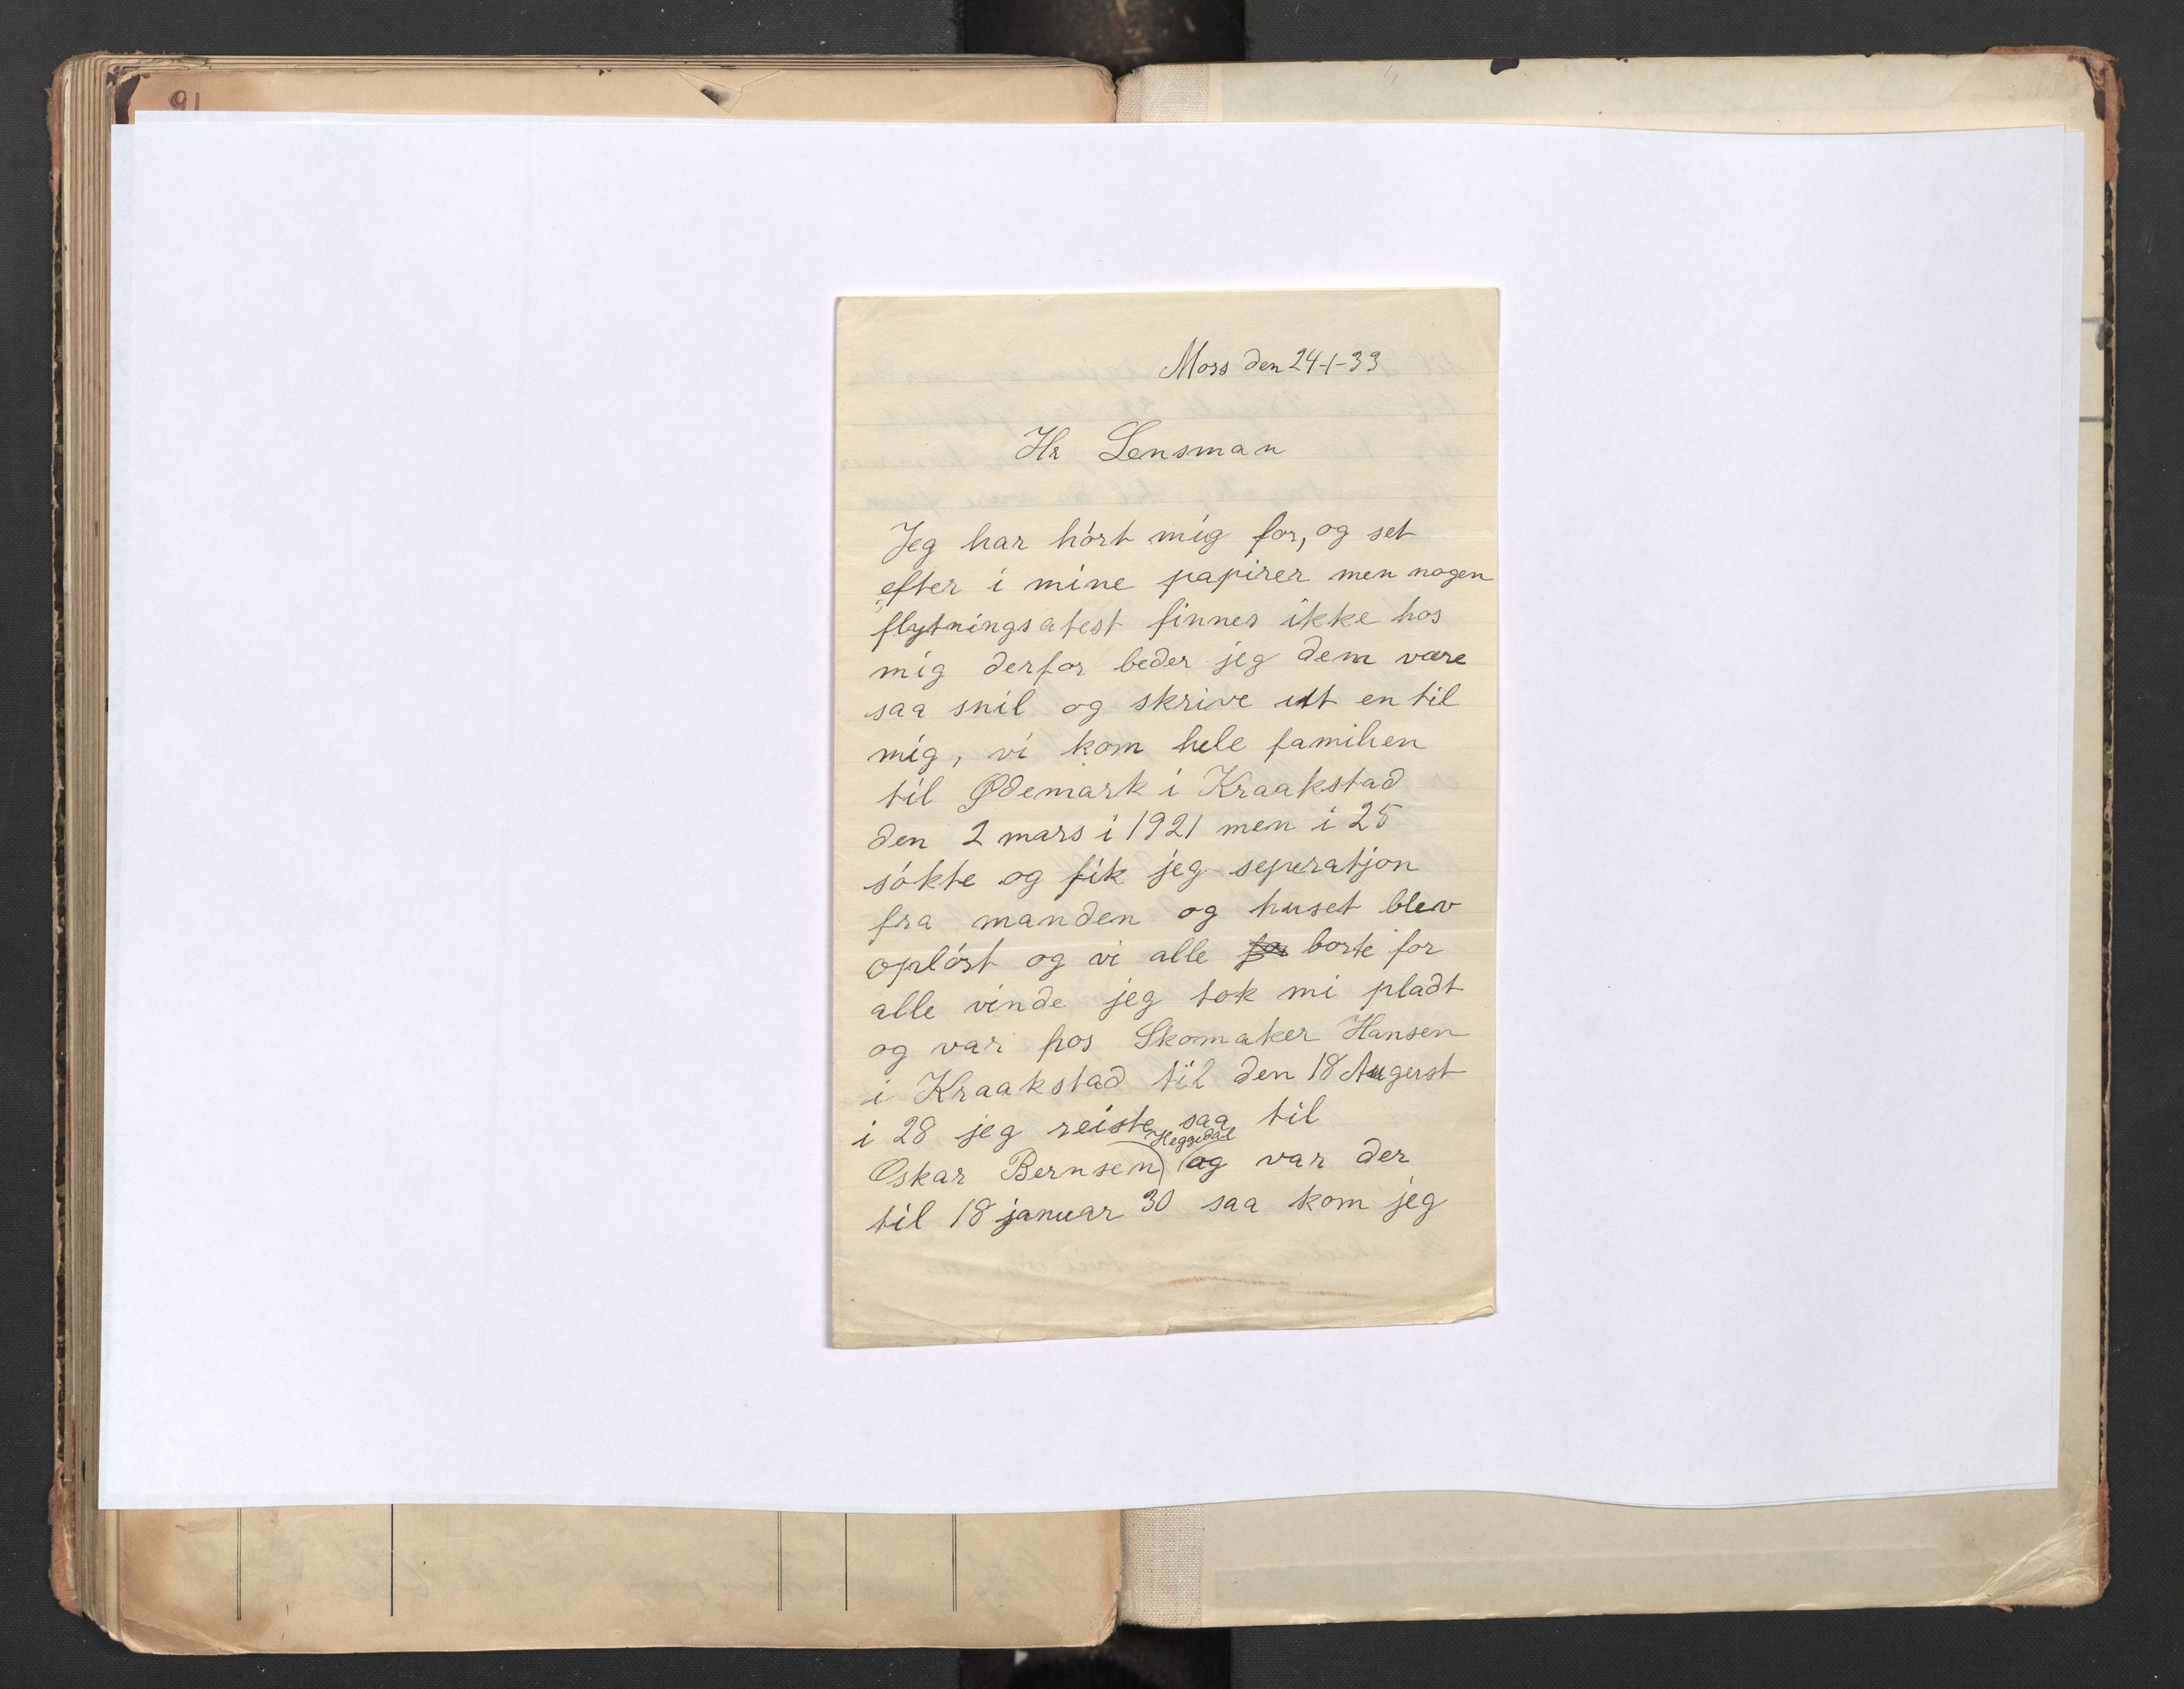 91
Moss den 24-1-33
Hr Lensman
Jeg har hórt mig for, og set
efter i mine papirer men nogen
flytningsatest finnes ikke hos
mig derfor beder jeg dem være
saa snil og skrive utt en til
mig, vi kom hele familien
til Ødemark i Kraakstad
den 2 mars i 1921 men i 25
sókte og fik jeg seperatjon
fra manden og huset blev
oplóst og vi alle borte for
alle vinde jeg tok mi pladt
og var hos Skomaker Hansen
i Kraakstad til den 18 August
i 28 jeg reiste saa til
Oskar Bernsen) Heggedal (og var der
til 18 januar 30 saa kom jeg